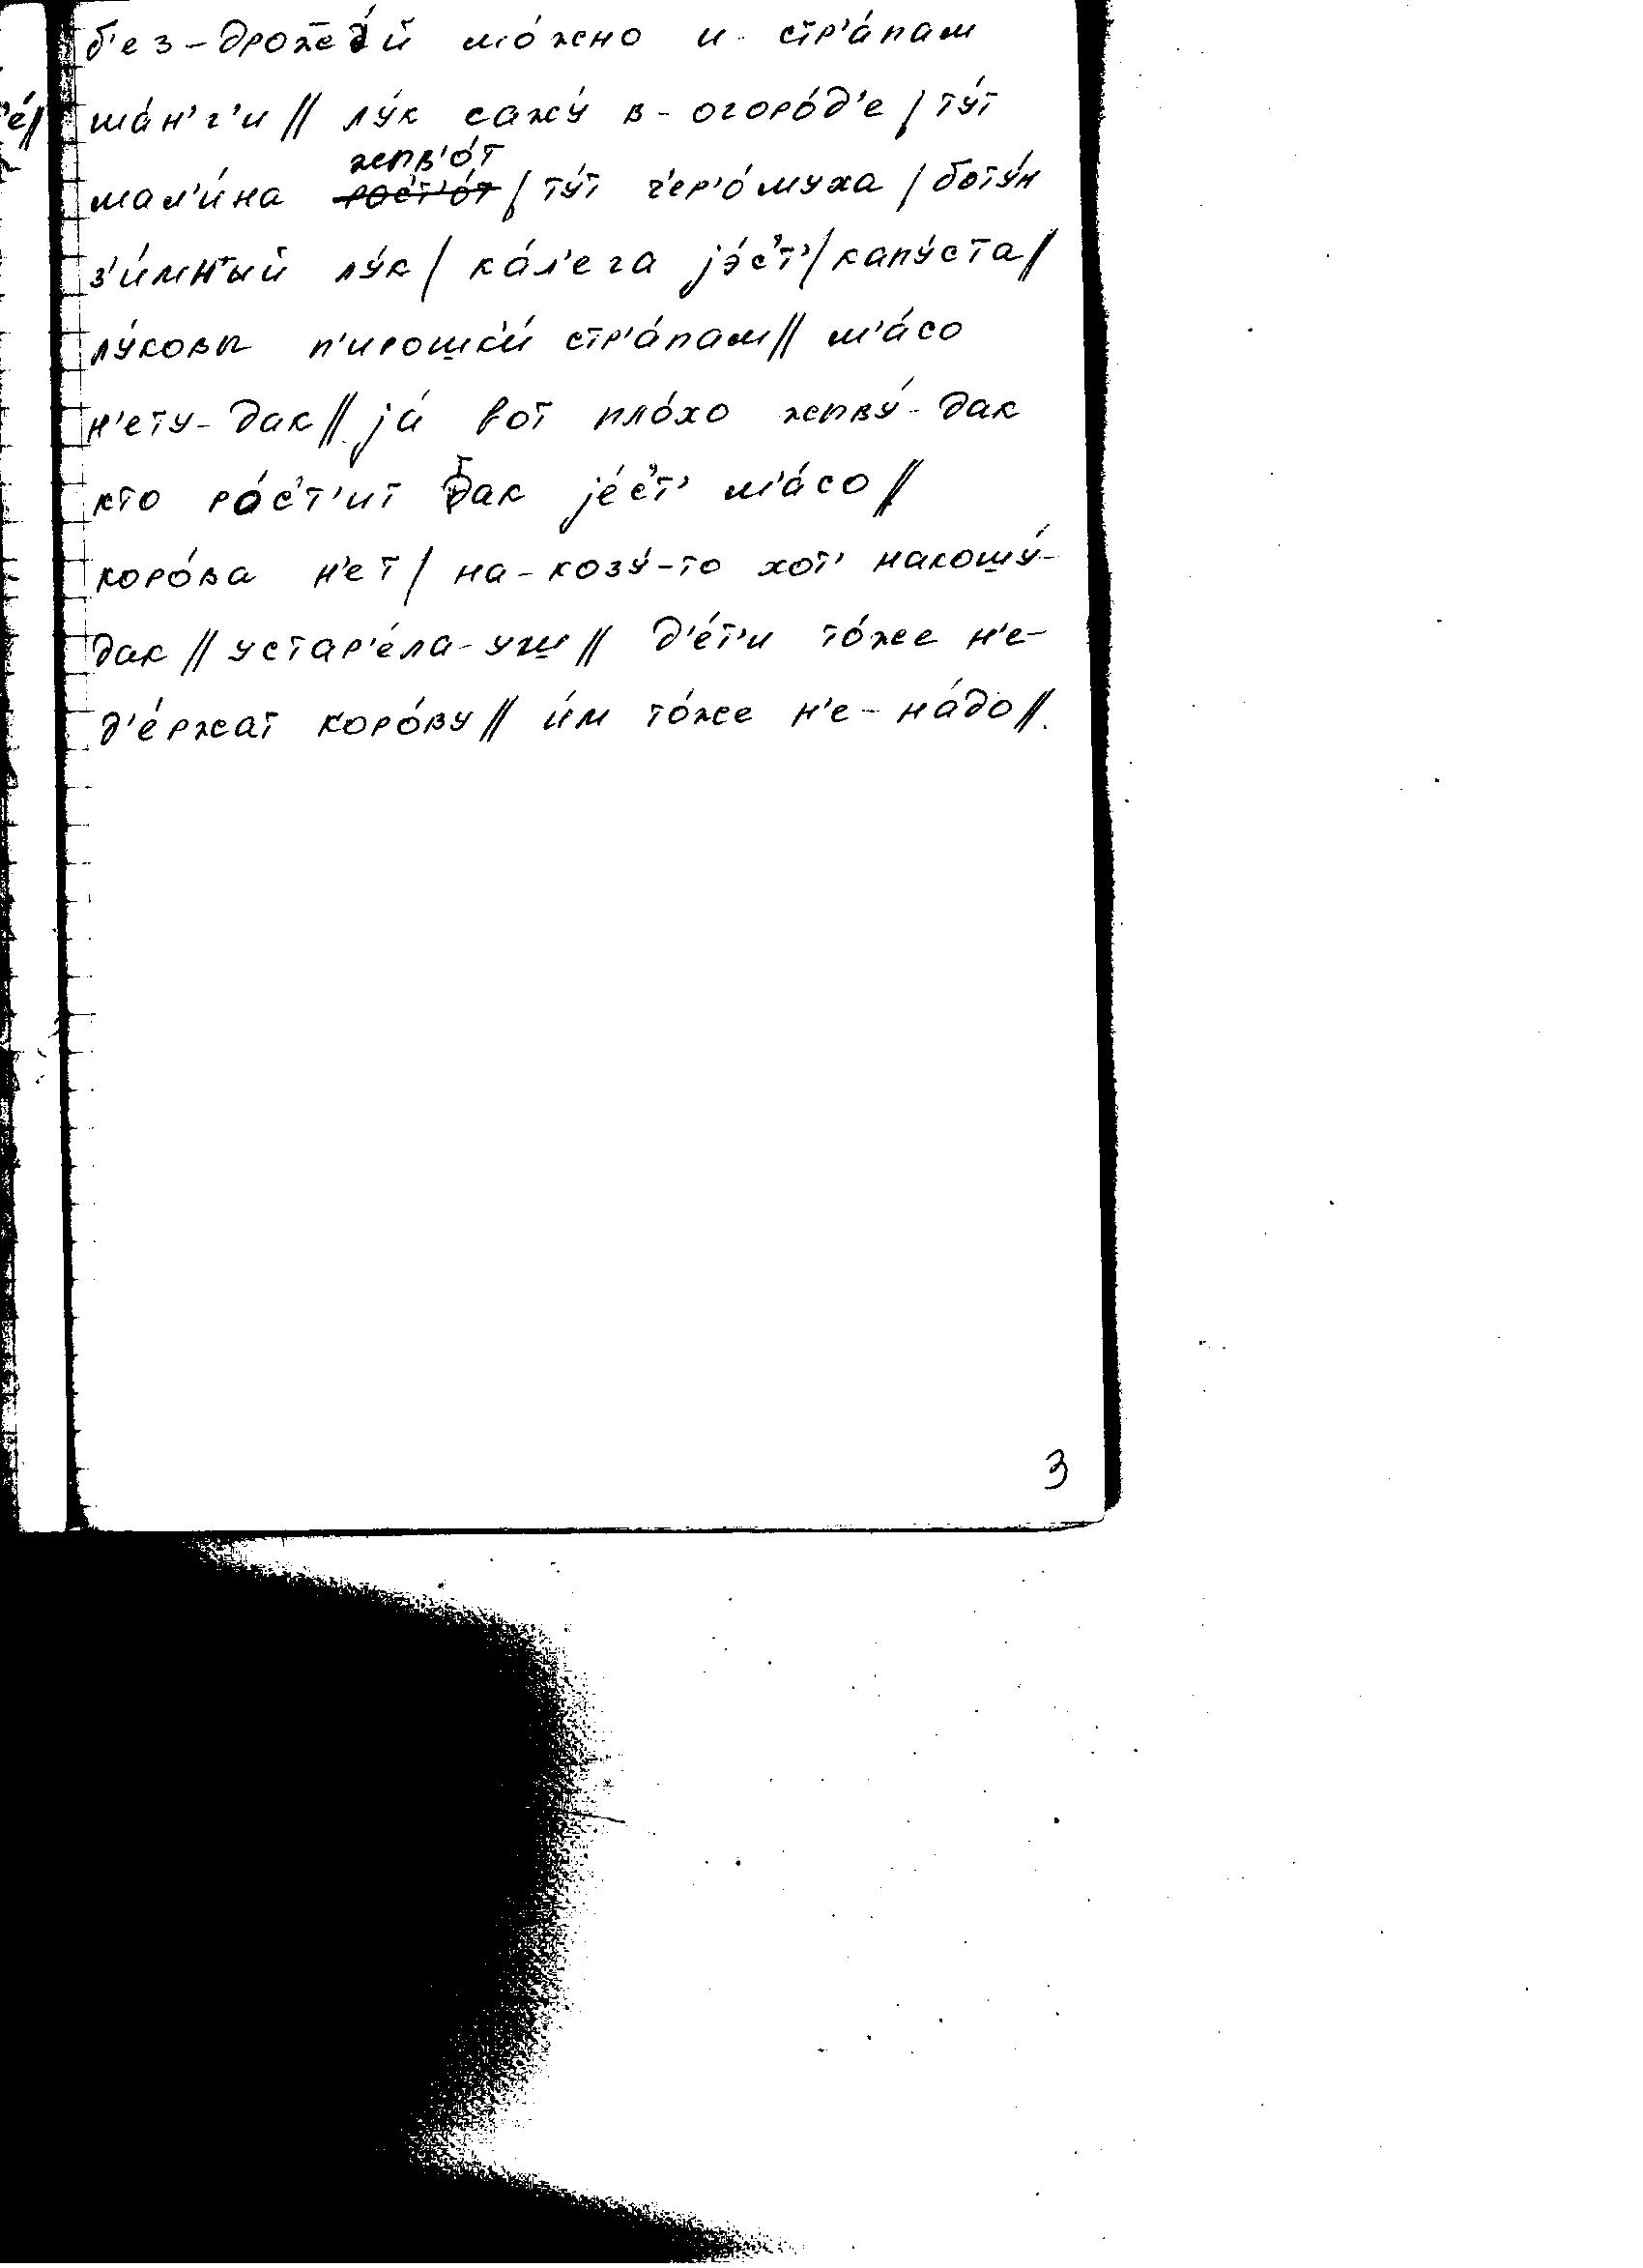 б'ез-дрожэ́й мо́жно и стр'а́пам
'е́//
ша́н'г'и // лу́к сажу́ в-огоро́д'е / ту́т
жыв'о́т
мал'и́на рос'т'о́т / ту́т ч'ер'о́муха / боту́н
з'и́мный лу́к / ка́л'ега jэ́с'т' / капу́ста //
лу́ковы п'ирошки́ стр'а́пам // м'а́со
н'ету-дак // jа́ вот пло́хо жыву́-дак
кто ро́с'т'ит дак jе́с'т' м'а́со //
коро́ва н'ет / на-козу́-то хот' накошу́-
дак // устар'е́ла-уш // д'е́т'и то́же н'е-
д'е́ржат коро́ву // и́м то́же н'е-на́до //.
3